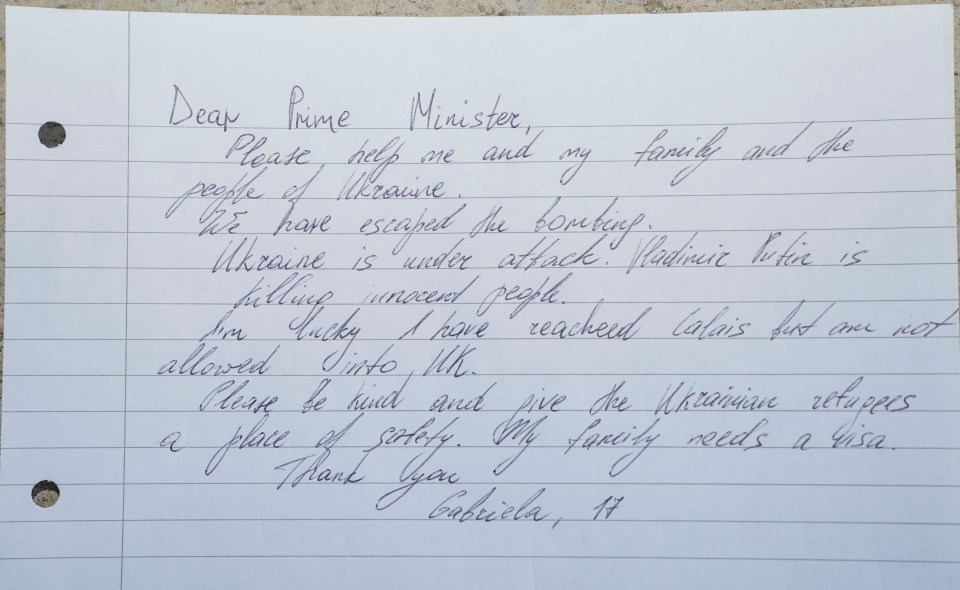 Dear Prime Minister,
Please, help me and my family and the
people of Ukraine.
We have escaped the bombing.
Ukraine is under attack. Vladimir Putin is
killing innocent people.
I'm lucky I have reacheed Calais but am not
allowed into UK.
Please, be kind and give the Ukrainian refugees
a place of safety. My family needs a visa.
Thank you
Gabriela, 17